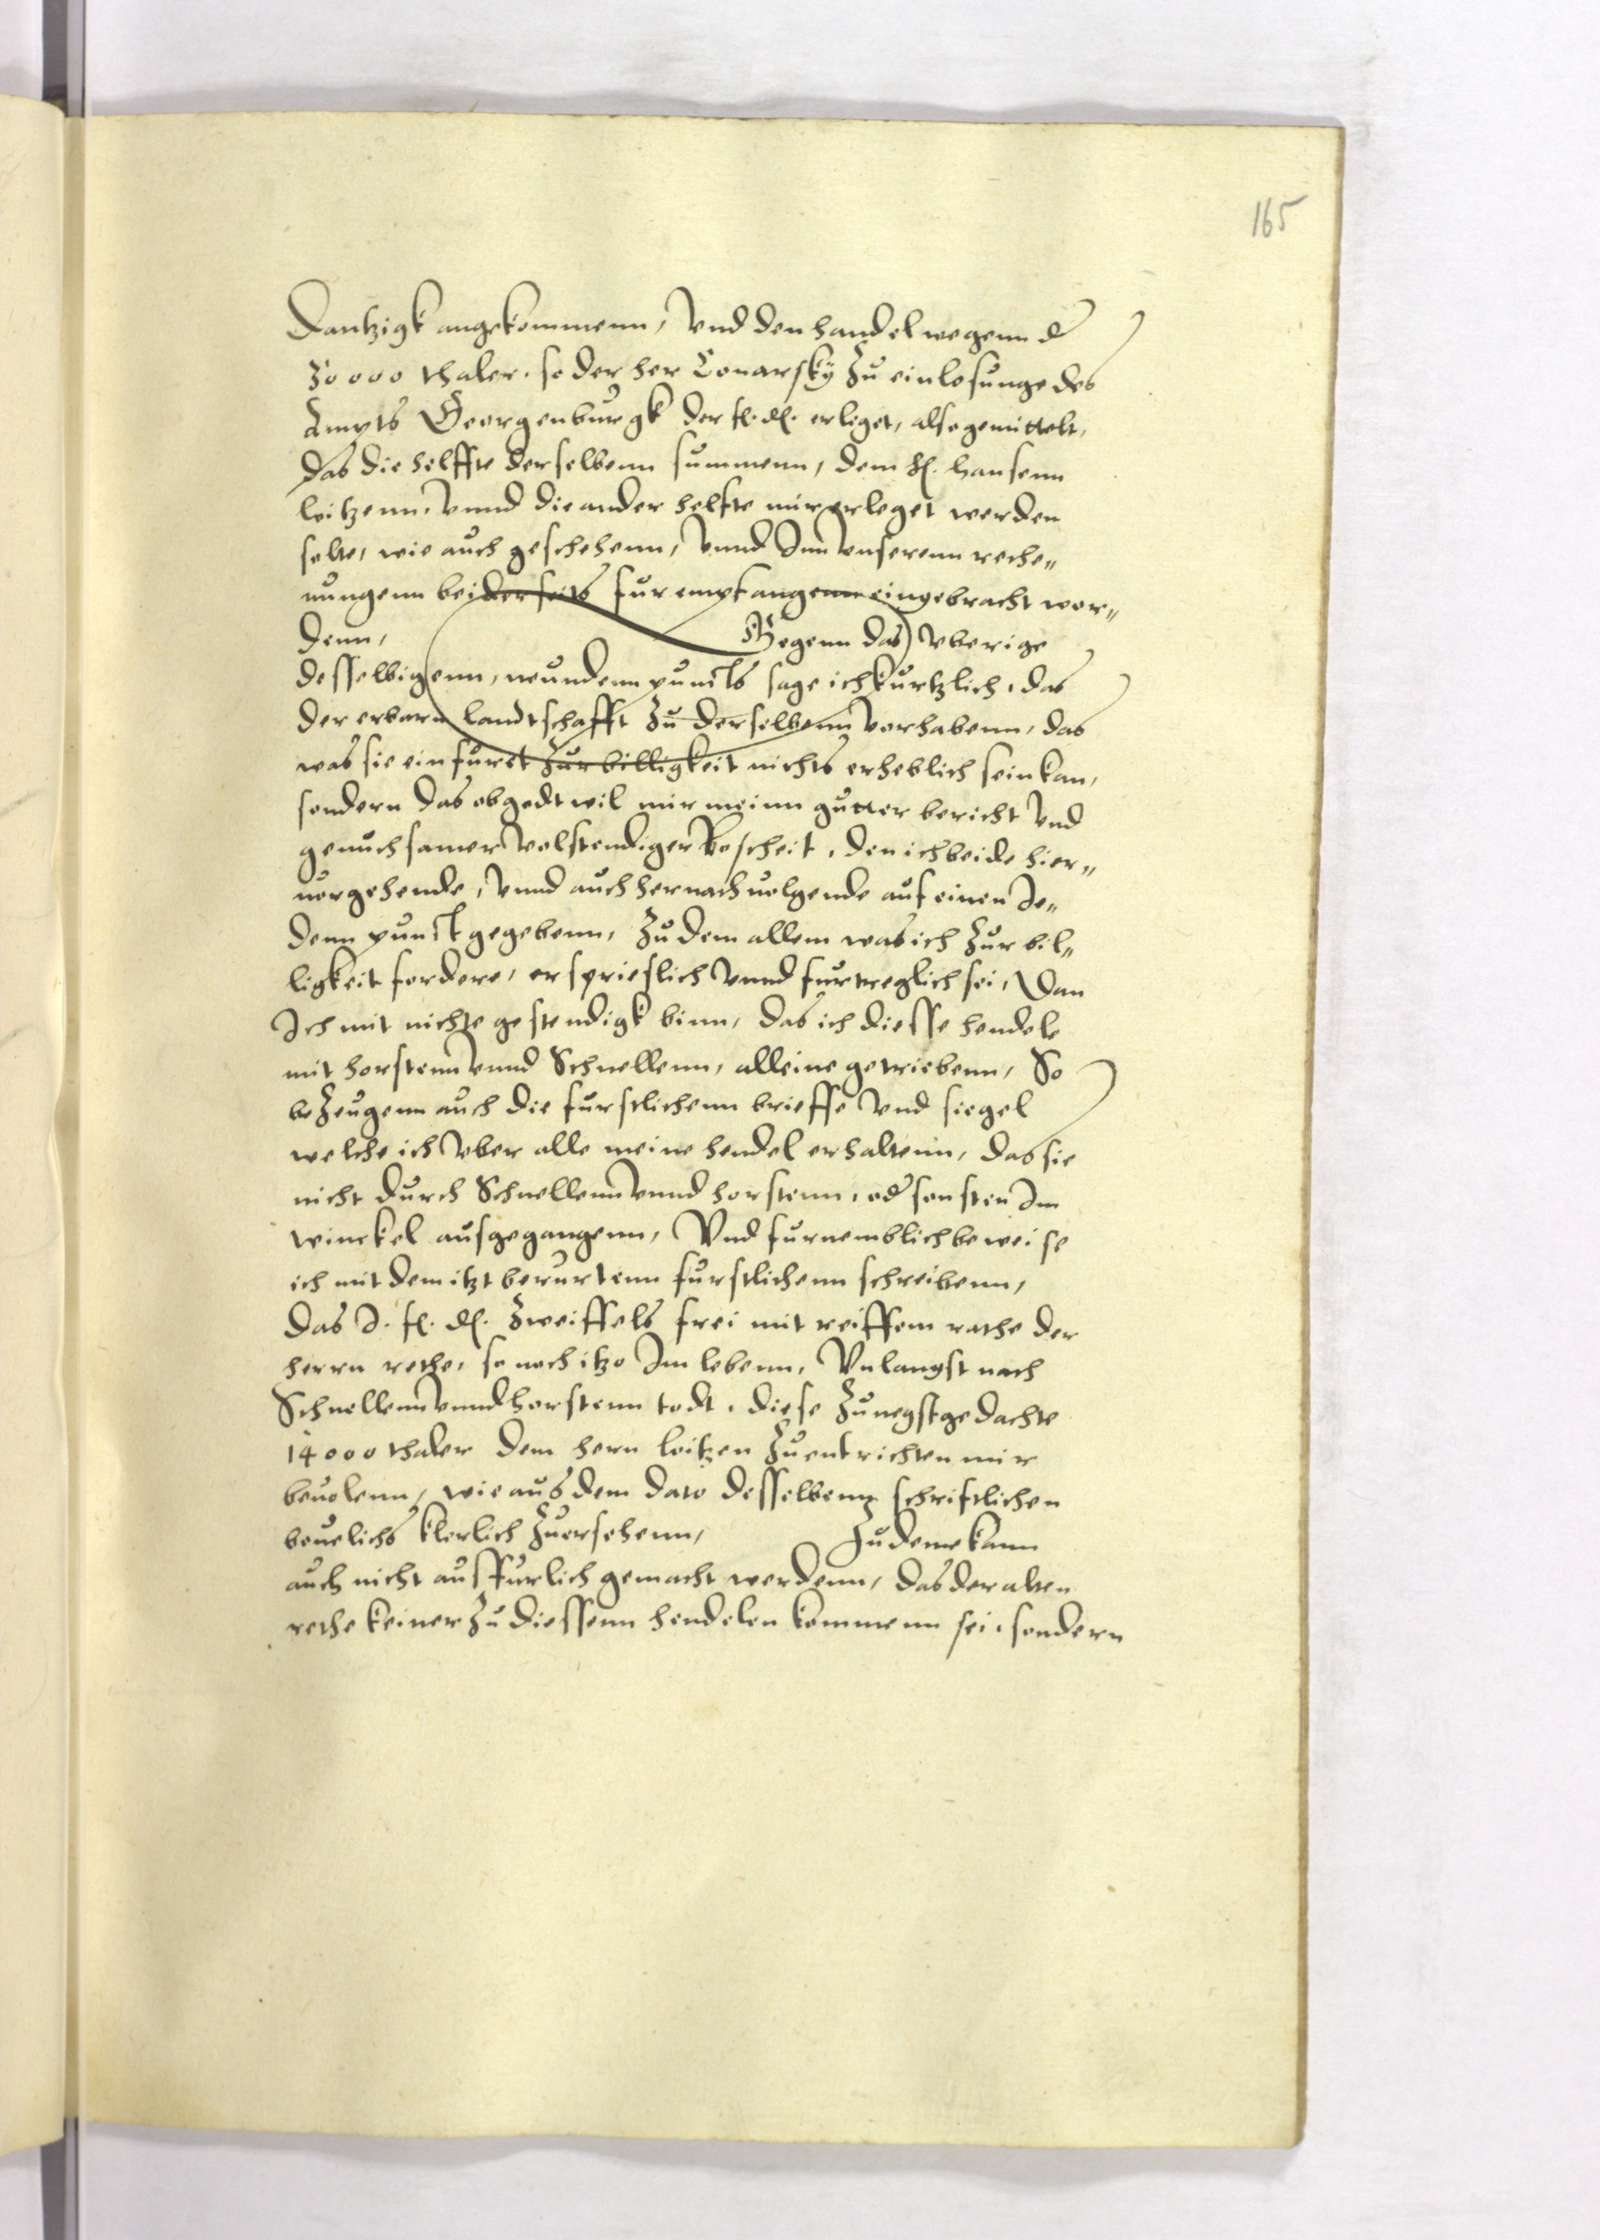 165
Dantzigk angekommenn, Vnd den handel wegenn d
30000 thaler. so der her Conarsky Zu einlosunge des
Ampts Georgenburgk der f. d. erleget, also gemittelt,
das die helffte derselbenn summenn, dem h. hansenn
leitzenn, vnnd die ander helfte mir erleget werden
solte, wie auch geschehenn, vnnd Inn vnserenn reche„
nungenn beiderseits fur empfangenn eingebracht wor„
denn, Gegenn das vberige
desselbigenn, neundenn puncts sage ich kurtzlich, das
der erbarn landtschafft Zu derselbenn vorhabenn, das
was sie einfuret Zur billigkeit nichts erheblich sein kan,
sondern das obgedt wil mir meinn gutter bericht Vnd
genuchsamer volstendiger bescheit, den ich beide hier„
uorgehende, vnnd auch hernachuolgende auf einen Ie„
denn punct gegebenn, Zu dem allem was ich Zur bil„
ligkeit fordere, ersprieslich vnnd furtreglich sei, Dan
Ich mit nichte gestendigk binn, das ich diesse hendele
mit horstenn vnnd Schnellenn, alleine getriebenn, So
beZeugenn auch die furstlichenn brieffe Vnd siegel
welche ich vber alle meine hendel erhaltenn, das sie
nicht durch Schnellenn vnnd horstenn, od sonsten Im
winckel ausgegangenn, Vnd furnemblich beweise
ich mit dem itzt berurtenn furstlichenn schreibenn,
das I. f. d. Zweiffels frei mit reiffem rathe der
herrn rethe, so noch itzo Im lebenn, Vnlangst nach
Schnellenn vnnd horstenn todt, diese Zunegstgedachte
14000 thaler dem hern leitzen Zuentrichten mir
beuolenn, wie aus dem dato desselbenn schriftlichen
beuelichs klerlich Zuersehenn, Zudeme kann
auch nicht ausfurlich gemacht werdenn, das der alten
rethe keiner Zu diessenn hendelen kommenn sei, sondern